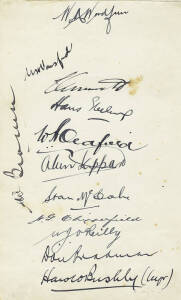 W A Woodfull
W H Ponsford
W A Brown
Hans Ebeling
W A Oldfield
Alan Kippax
Stan McCabe
A G Chipperfield
W J O'Reilly
Don Bradman
Harold Bushby (Mgr)